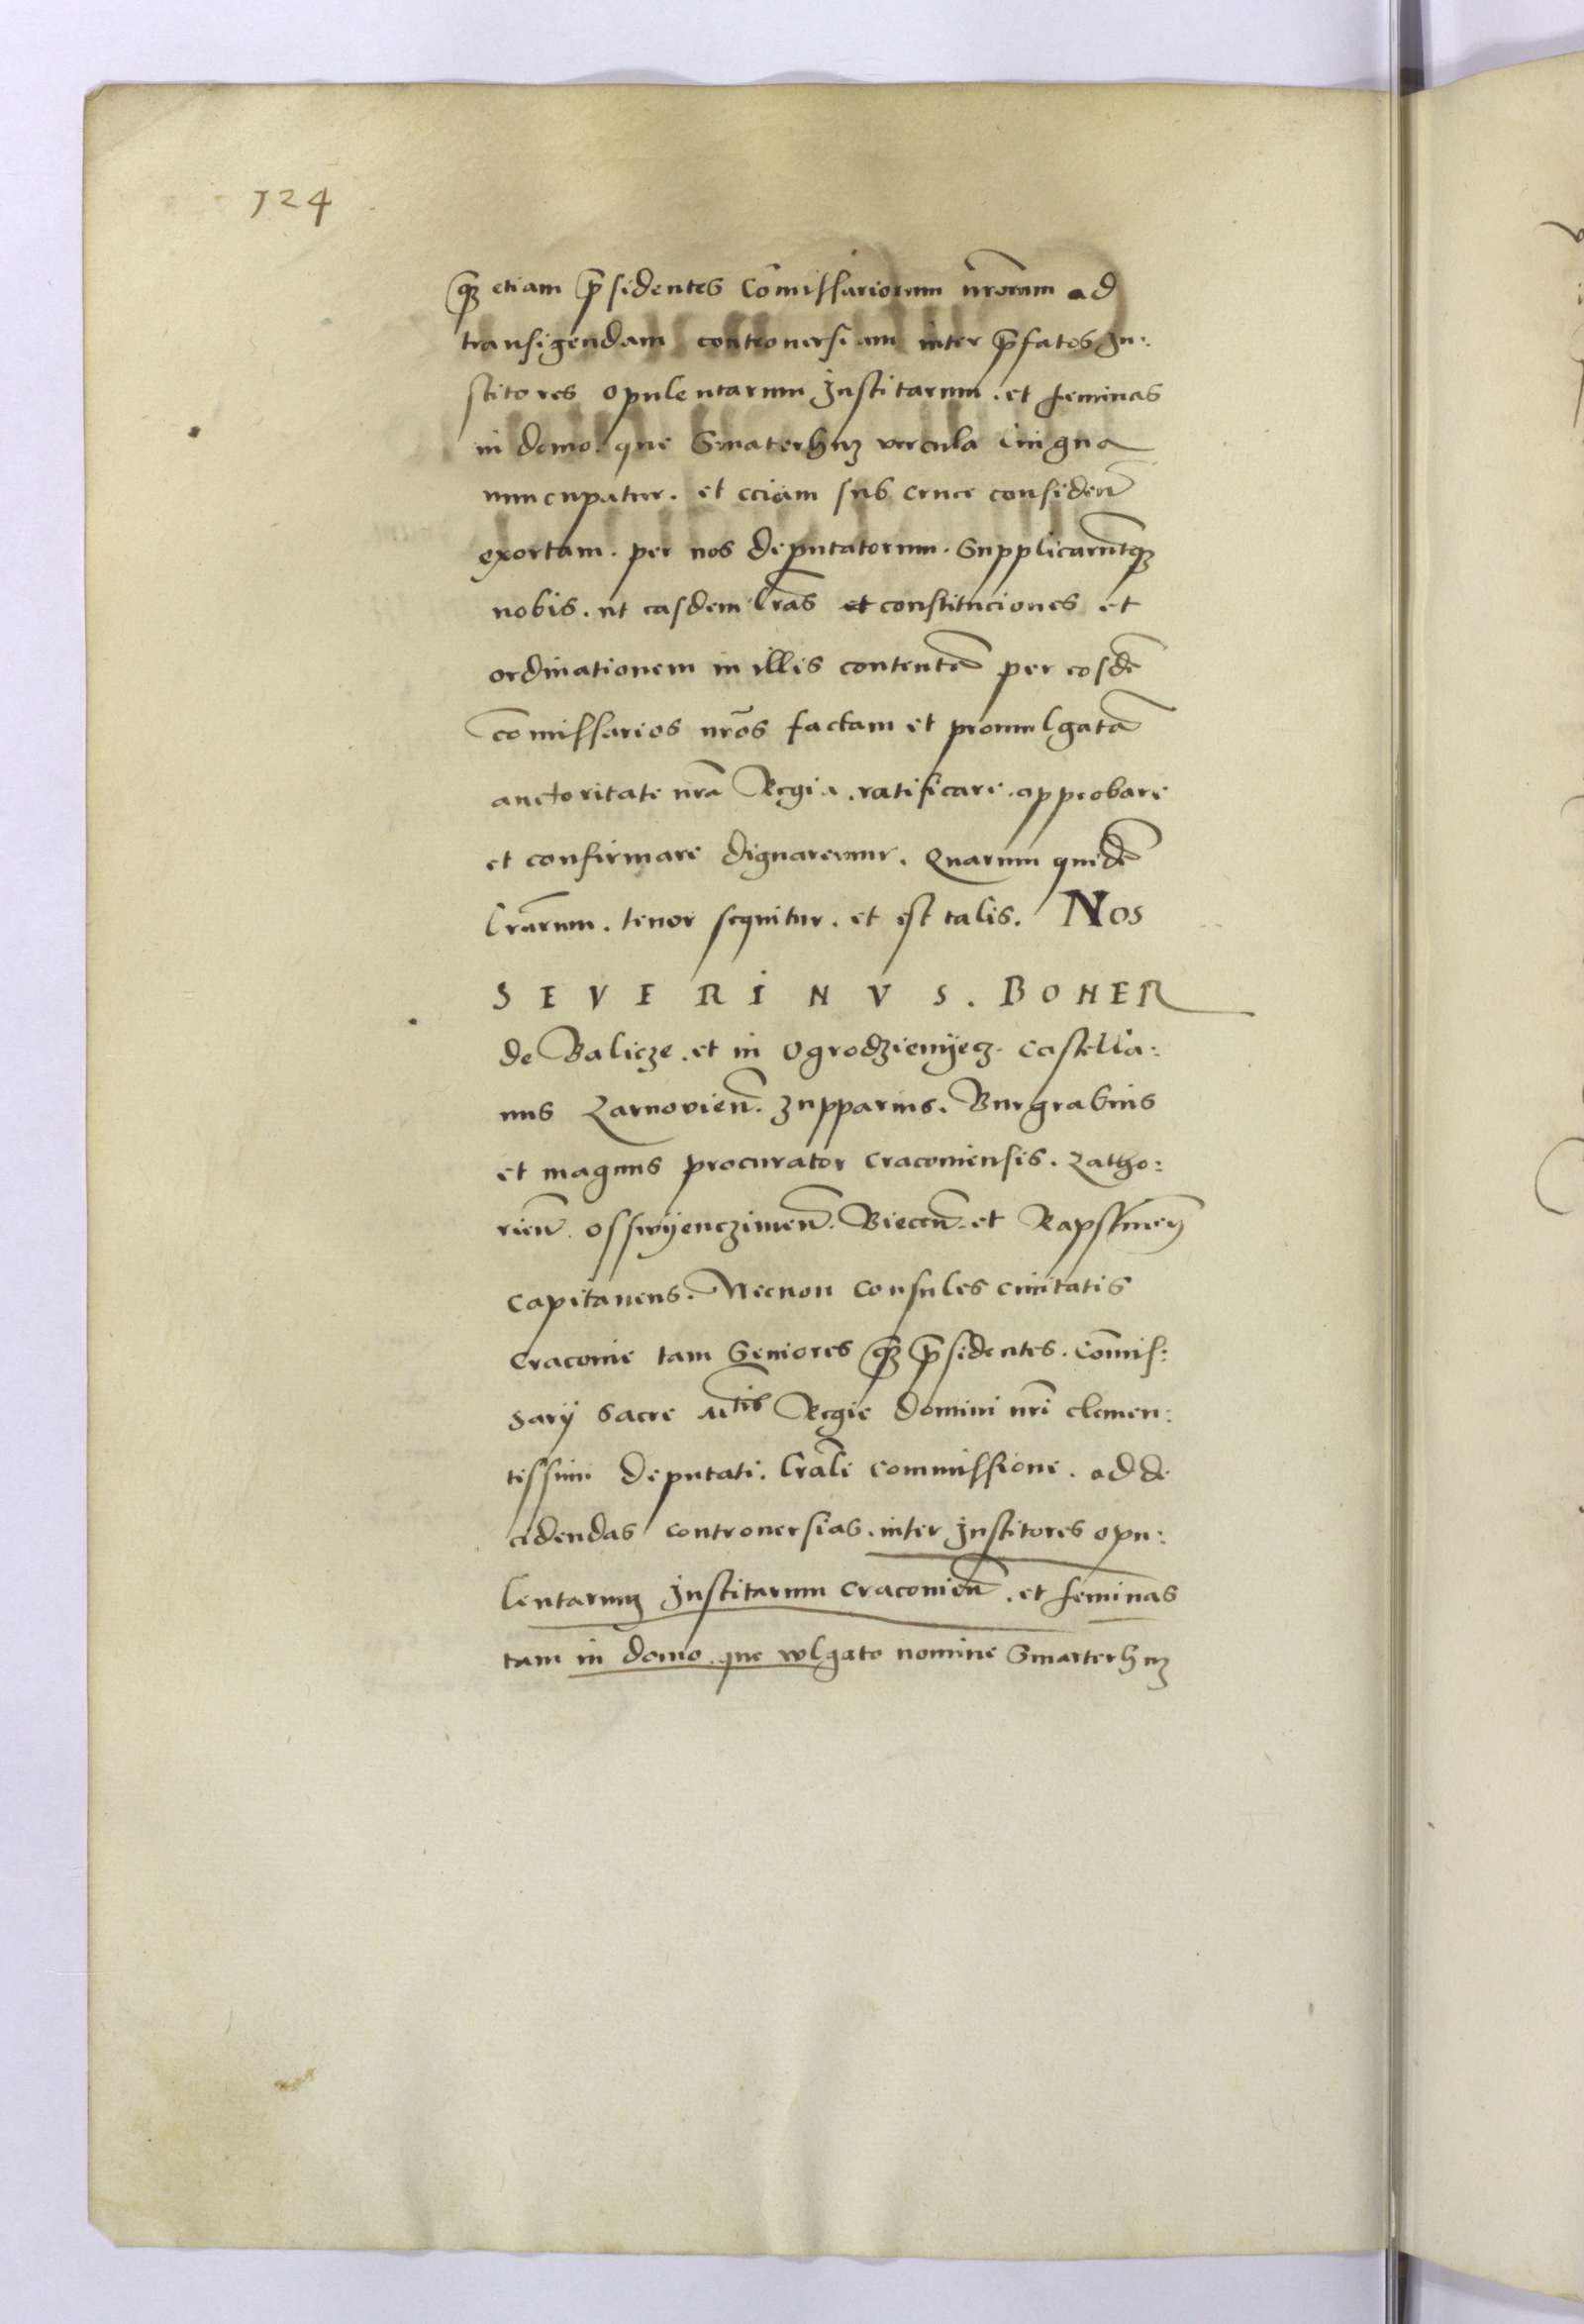 124
q̃ꝫ etiam p̃sidentes Com̃issariorum nr̃orum ad
transigendam controuersiam inter p̃fatos In:
stitores opulentarum Institarum . et feminas
in domo . que Smaterhuz vercula lingua
nuncupatur . et eciam sub cruce consideñ
exortam . per nos deputatorum . Supplicarũtqꝫ
nobis . ut easdem lr̃as et constituciones et
ordinationem in illis contentã per eosdẽ
com̃issarios nr̃os factam et promulgatã
auctoritate nr̃a Regia . ratificare . approbare
et confirmare dignaremur . Quarum quidẽ
lr̃arum . tenor sequitur . et est talis . Nos
SEVERINVS . BONER
de Balicze . et in Ogrodzienyecz . Castella:
nus Zarnovieñ . Zupparius . Burgrabius
et magnus procurator Cracouiensis . Zatho:
rieñ . Osswyencziméñ . Bieceñ . et Rapstineñ
Capitaneus . Necnon Consules ciuitatis
Cracouie tam Seniores q̃ꝫ p̃sidentes . Com̃is:
sarij Sacre Mtis Regie domini nr̃i clemen:
tissimi deputati . lr̃ali commissione . ad de
cidendas controuersias . inter Institores opu:
lentarum Institarum Cracouieñ . et feminas
tam in domo . que wlgato nomine Smarterhuz